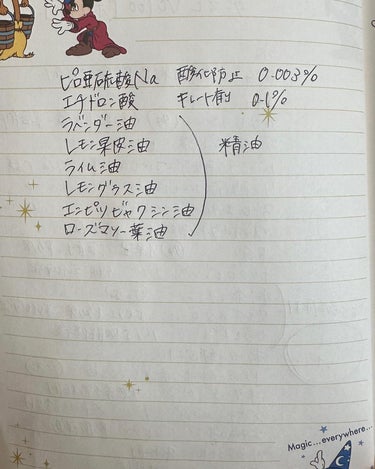 ピロ亜硫酸Na 酸化防止 0.003%
エチドロン酸 キレート剤 0.1%
ラベンダー油
レモン果皮油
ライム油 精油
レモングラス油
エンピツビャクシン油
ローズマリー葉油
Magic...everywhere...